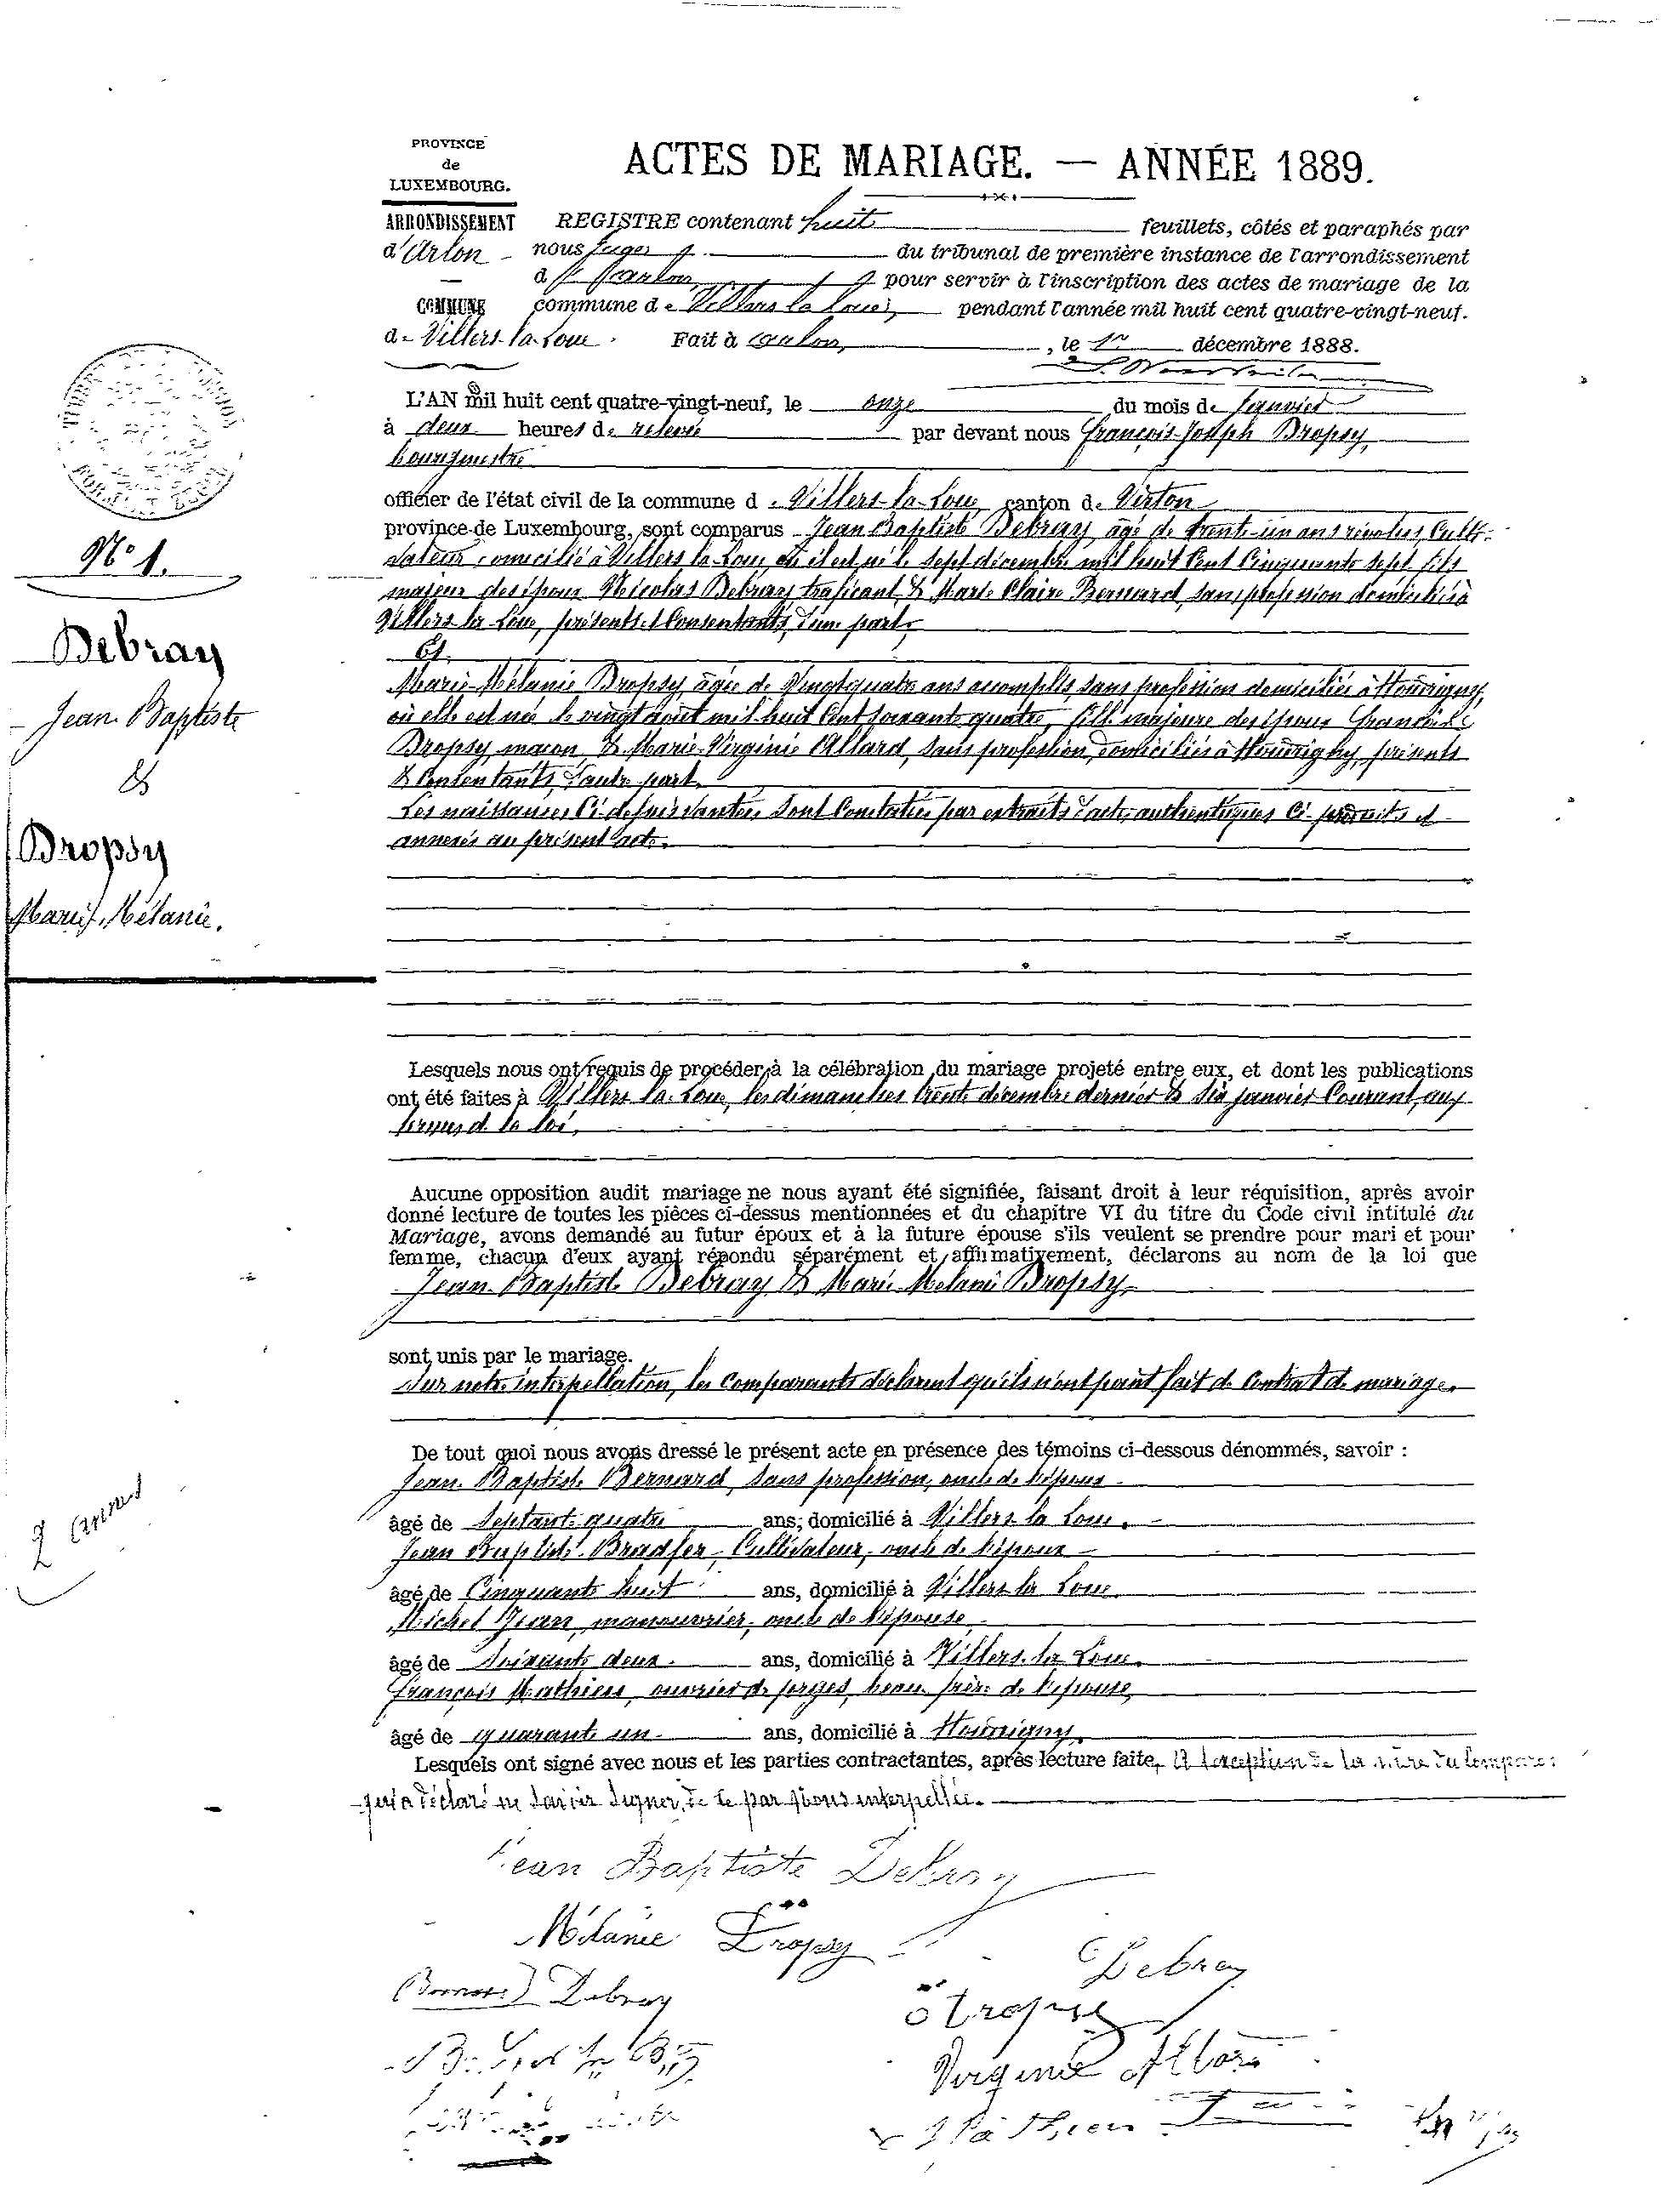 PROVINCE
de
LUXEMBOURG.
ACTES DE MARIAGE. — ANNÉE 1889.
ARRONDISSEMENT
d'Arlon
COMMUNE
de Villers-la-Loue.
REGISTRE contenant huit feuillets, côtés et paraphés par
nous Juge du tribunal de première instance de l'arrondissement
d pour servir à l'inscription des actes de mariage de la
commune de Villers la Loue, pendant l'année mil huit cent quatre-vingt-neuf.
Fait à arlon, le 1er décembre 1888.
L'AN mil huit cent quatre-vingt-neuf, le onze du mois de Janvier
à deux heures de relevée par devant nous François-Joseph Dropsy,
bourgmestre
officier de l'état civil de la commune de Villers-la-Loue, canton de Virton
province de Luxembourg, sont comparus Jean Baptiste Debray, âgé de trente-un ans révolus, Culti-
vateur, domicilié à Villers-la-Loue, où il est né le sept décembre mil huit Cent Cinquante sept, fils
majeur des époux Nicolas Debray traficant, & Marie Claire Bernard, sans profession domiciliés à
Villers-la-Loue, présents et Consentants, d'une part.
Et
Marie-Mélanie Dropsy, âgée de Vingtquatre ans accomplis, sans profession domiciliée à Houdrigny,
où elle est née le vingt août mil huit Cent soixante quatre, fille majeure des époux
Dropsy, maçon, & Marie-Virginie Allard, sans profession, domiciliés à Houdrigny, présents
& Consentants, d'autre part.
Les naissances Ci-dessus vantées sont Constatées par extraits d'acte, authentiques Ci-produits et
annexés au présent acte.
N° 1.
Debray
Jean Baptiste
&
Dropsy
Marie-Mélanie.
Lesquels nous ont requis de procéder à la célébration du mariage projeté entre eux, et dont les publications
ont été faites à Villers-la-Loue, les dimanches trente décembre dernier & six janvier Courant, aux
termes de la loi.
Aucune opposition audit mariage ne nous ayant été signifiée, faisant droit à leur réquisition, après avoir
donné lecture de toutes les pièces ci-dessus mentionnées et du chapitre VI du titre du Code civil intitulé du
Mariage, avons demandé au futur époux et à la future épouse s'ils veulent se prendre pour mari et pour
femme, chacun d'eux ayant répondu séparément et affirmativement, déclarons au nom de la loi que
Jean Baptiste Debray & Marie Mélanie Dropsy
sont unis par le mariage.
Sur notre interpellation, les Comparants déclarent qu'ils n'ont point fait de Contrat de mariage.
De tout quoi nous avons dressé le présent acte en présence des témoins ci-dessous dénommés, savoir :
Jean Baptiste Bernard, sans profession, oncle de l'époux
âgé de Septante quatre ans, domicilié à Villers la Loue.
Jean Baptiste Bradfer, Cultivateur, oncle de l'époux
âgé de Cinquante huit ans, domicilié à Villers la Loue
Michel Jean, manouvrier, oncle de l'épouse
âgé de Soixante deux ans, domicilié à Villers-la-Loue.
François Mathieu, ouvrier de forges, beau frère de l'épouse,
âgé de quarante un ans, domicilié à Houdrigny.
Lesquels ont signé avec nous et les parties contractantes, après lecture faite, à l'exception de la mère du
qui a déclaré ne savoir signer, de ce par Nous interpellée.
2 annexes
Jean Baptiste Debray
Mélanie Dropsy
Debray
Debray
Dropsy
Virginie Allard
Mathieu